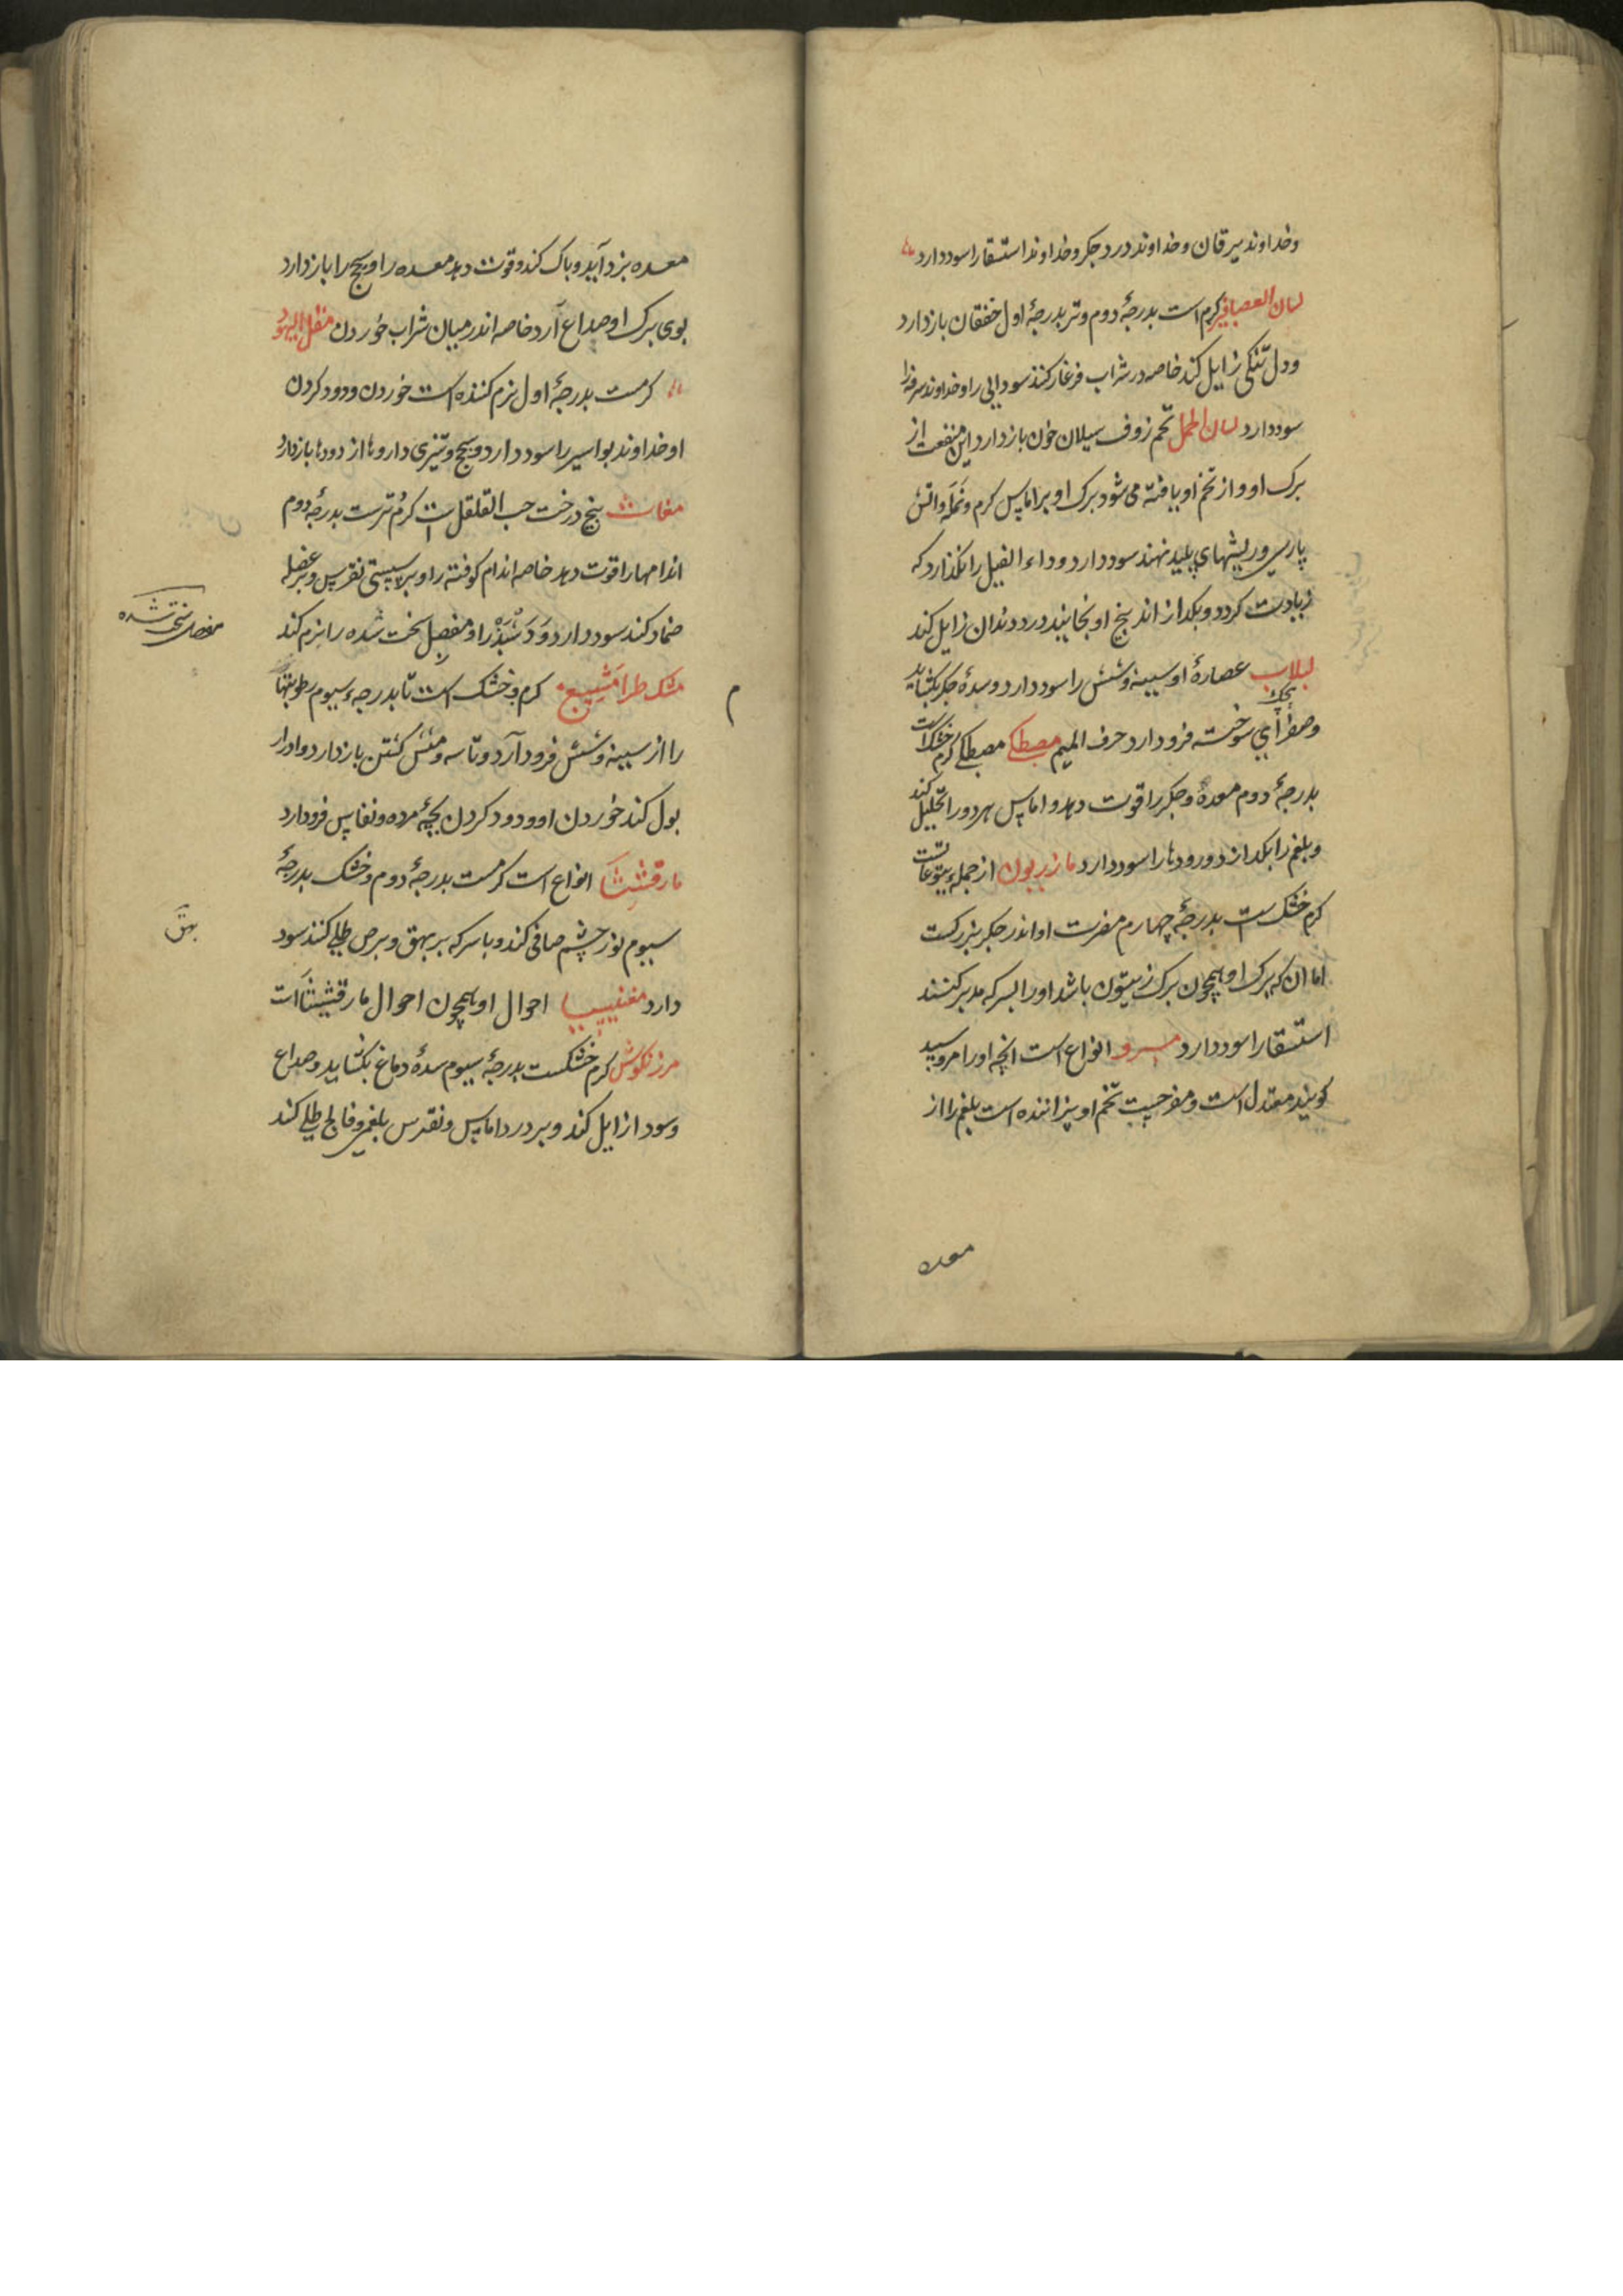 وخداوند یرقان وخداوند درد جکر وخداوند استسقا را سود دارد
لسان العصافیر کرم است بدرجهٔ دوم وتر بدرجهٔ اول خفقان بازدارد
ودل تنکی زایل کند خاصه در شراب فرغار کنند سودایی را وخداوند سرفه را
سود دارد لسان الحمل تخم زوف سیلان خون بازدارد این منفعت از
برک او واز تخم او یافته می شود برک او بر اماس کرم ونمله واتش
پارسی وریشهای پلید نهند سود دارد وداء الفیل را نکذارد که
زیادت کردد وبکدازاند بیخ او بخایند درد دندان زایل کند
لبلاب عصارهٔ او سینه وشش را سود دارد وسدهٔ جکر بکشاید
وصفرای سوخته فرود ارد حرف المیم مصطکی مصطکی کرم خشک است
بدرجهٔ دوم معدهٔ وجکر را قوت دهد واماس هر دو را تحلیل کند
وبلغم را بکدازد ورودها را سود دارد مازریون از جملهء یتوعاتست
کرم خشک ست بدرجهٔ چهارم مضرت او اندر جکر بزرکست
اما ان که برک او همچون برک زیتون باشد او را بسرکه مدبر کنند
استسقا را سود دارد مرو انواع است انچه او را مرو سپید
کویند معتدل است ومفرحست تخم او پزاننده است بلغم را از
معده
معده بزداید وپاک کند وقوت دهد معده را وسحج را بازدارد
بوی برک او صداع آرد خاصه اندر میان شراب خوردن مقل الیهود
کرمست بدرجهٔ اول نرم کننده است خوردن ودود کردن
او خداوند بواسیر را سود دارد وسحج وتیزی داروها از رودها بازدارد
مغاث بیخ درخت حب القلقل ست کرم ترست بدرجهٔ دوم
اندامها را قوت دهد خاصه اندام کوفته را وبر سستی نقرس وبر عضله
ضماد کند سود دارد ودشبذ را ومفصل سخت شده را نرم کند
مفصل سخت شده
مشک طرامشیع کرم وخشک است تا بدرجهء سیوم رطوبتها
م
را از سینه وشش فرود آرد وتاسه ومنش کشتن بازدارد وادرار
بول کند خوردن او ودود کردن بچهٔ مرده ونفاس فرود ارد
مارقشیثا انواع است کرمست بدرجهٔ دوم وخشک بدرجهٔ
سیوم نور چشم صافی کند وبا سرکه بر بهق وبرص طلی کنند سود
بهق
دارد مغنیسیا احوال او همچون احوال مارقشیثا است
مرزنکوش کرم خشکست بدرجهٔ سیوم سدهٔ دماغ بکشاید وصداع
وسودا زایل کند وبر درد اماس ونقرس بلغمی وفالج طلی کند